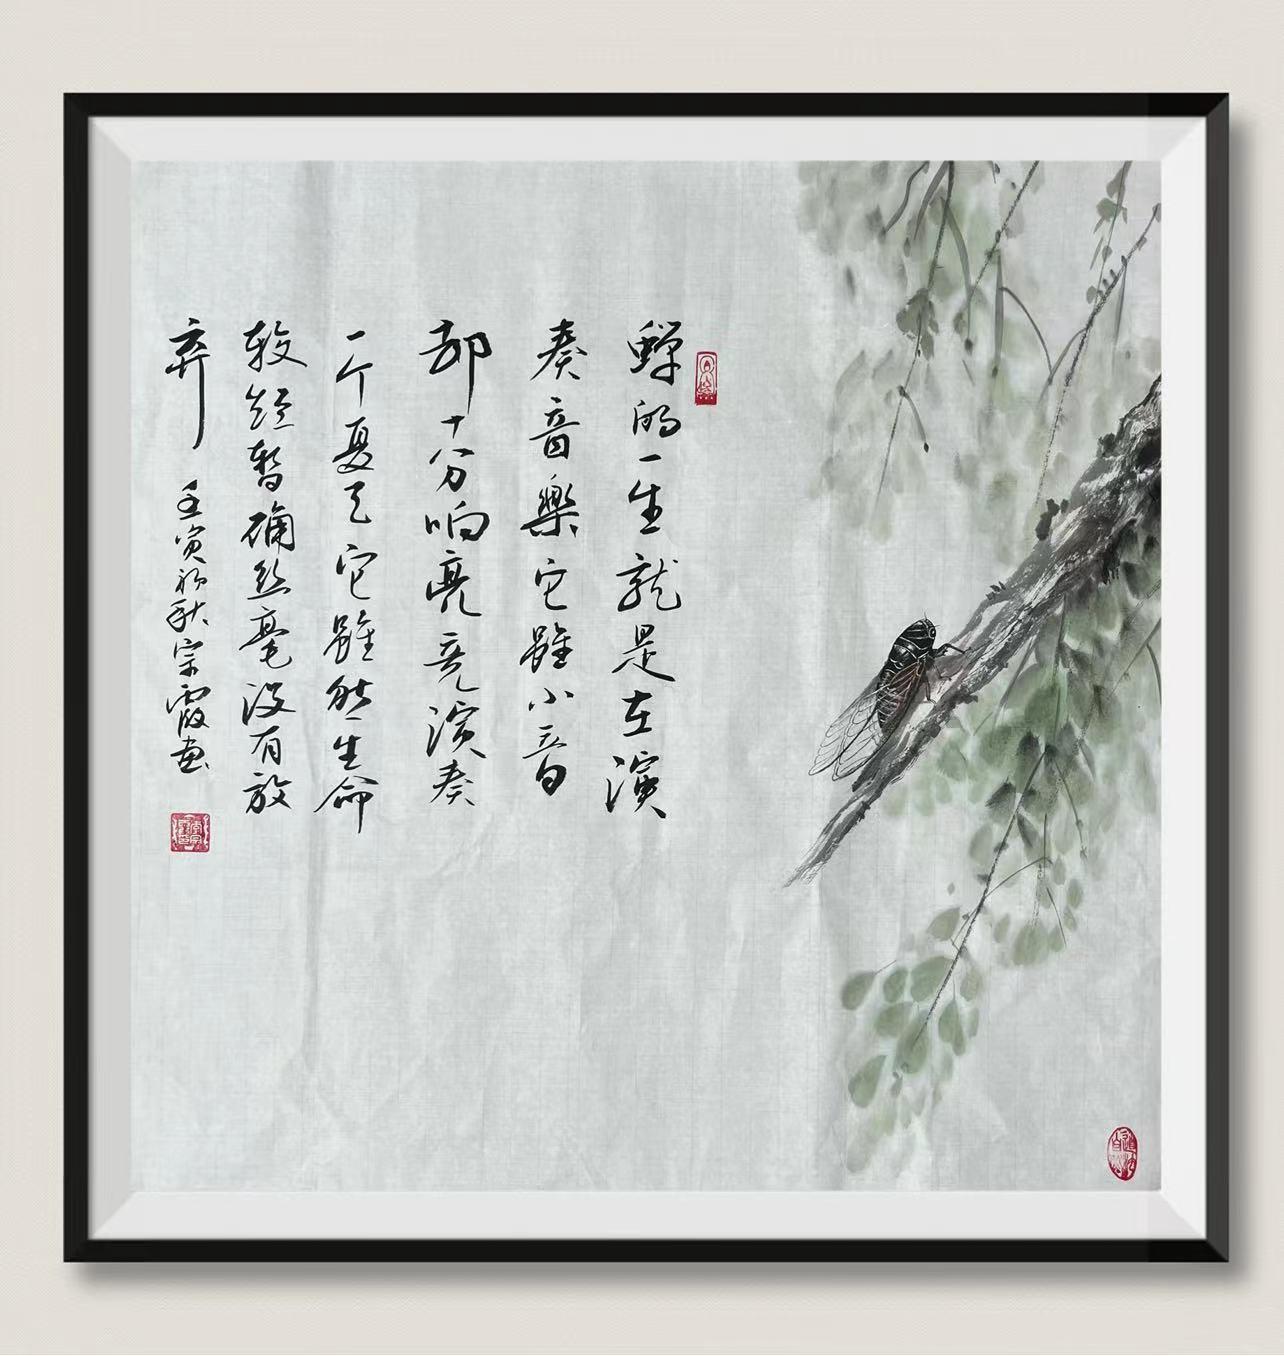 蝉的一生就是在演
奏音樂它雖小音
却十分响亮竟演奏
一个夏天它雖然生命
较短暂确丝毫没有放
弃 壬寅初秋宗霞画